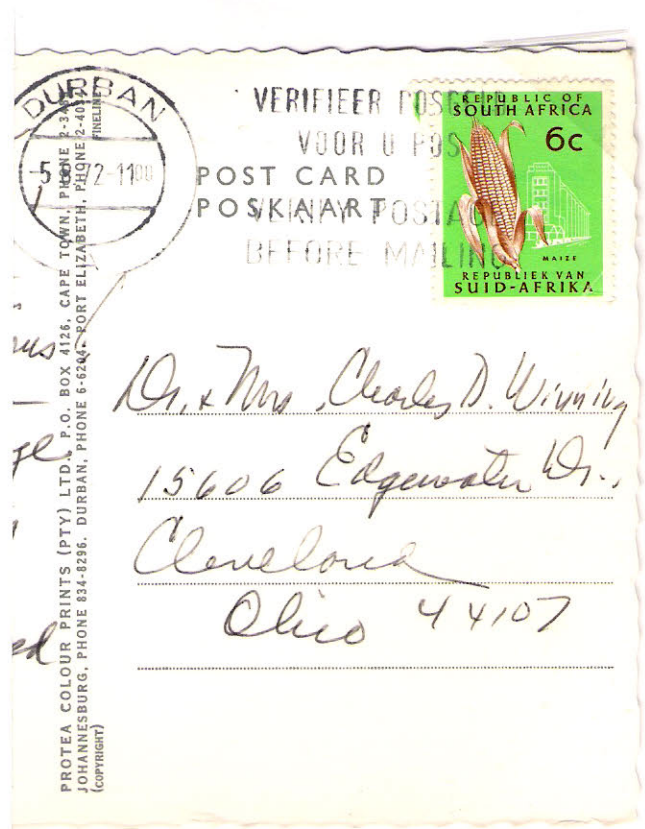 DURBAN
5 72-11 00
VERIFIEER POSGELD
VOOR U POS
VERIFY POSTAGE
BEFORE MAILING
POST CARD
POSKAART
REPUBLIC OF
SOUTH AFRICA
6c
MAIZE
REPUBLIEK VAN
SUID-AFRIKA
Dr. & Mrs. Charles D. Winning
15606 Edgewater Dr.,
Cleveland
Ohio 44107
ed
PROTEA COLOUR PRINTS (PTY) LTD. P.O. BOX 4126, CAPE TOWN, PHONE
JOHANNESBURG, PHONE 834-8296. DURBAN, PHONE 6-6204. PORT ELIZABETH, PHONE
(COPYRIGHT)
FINELINE